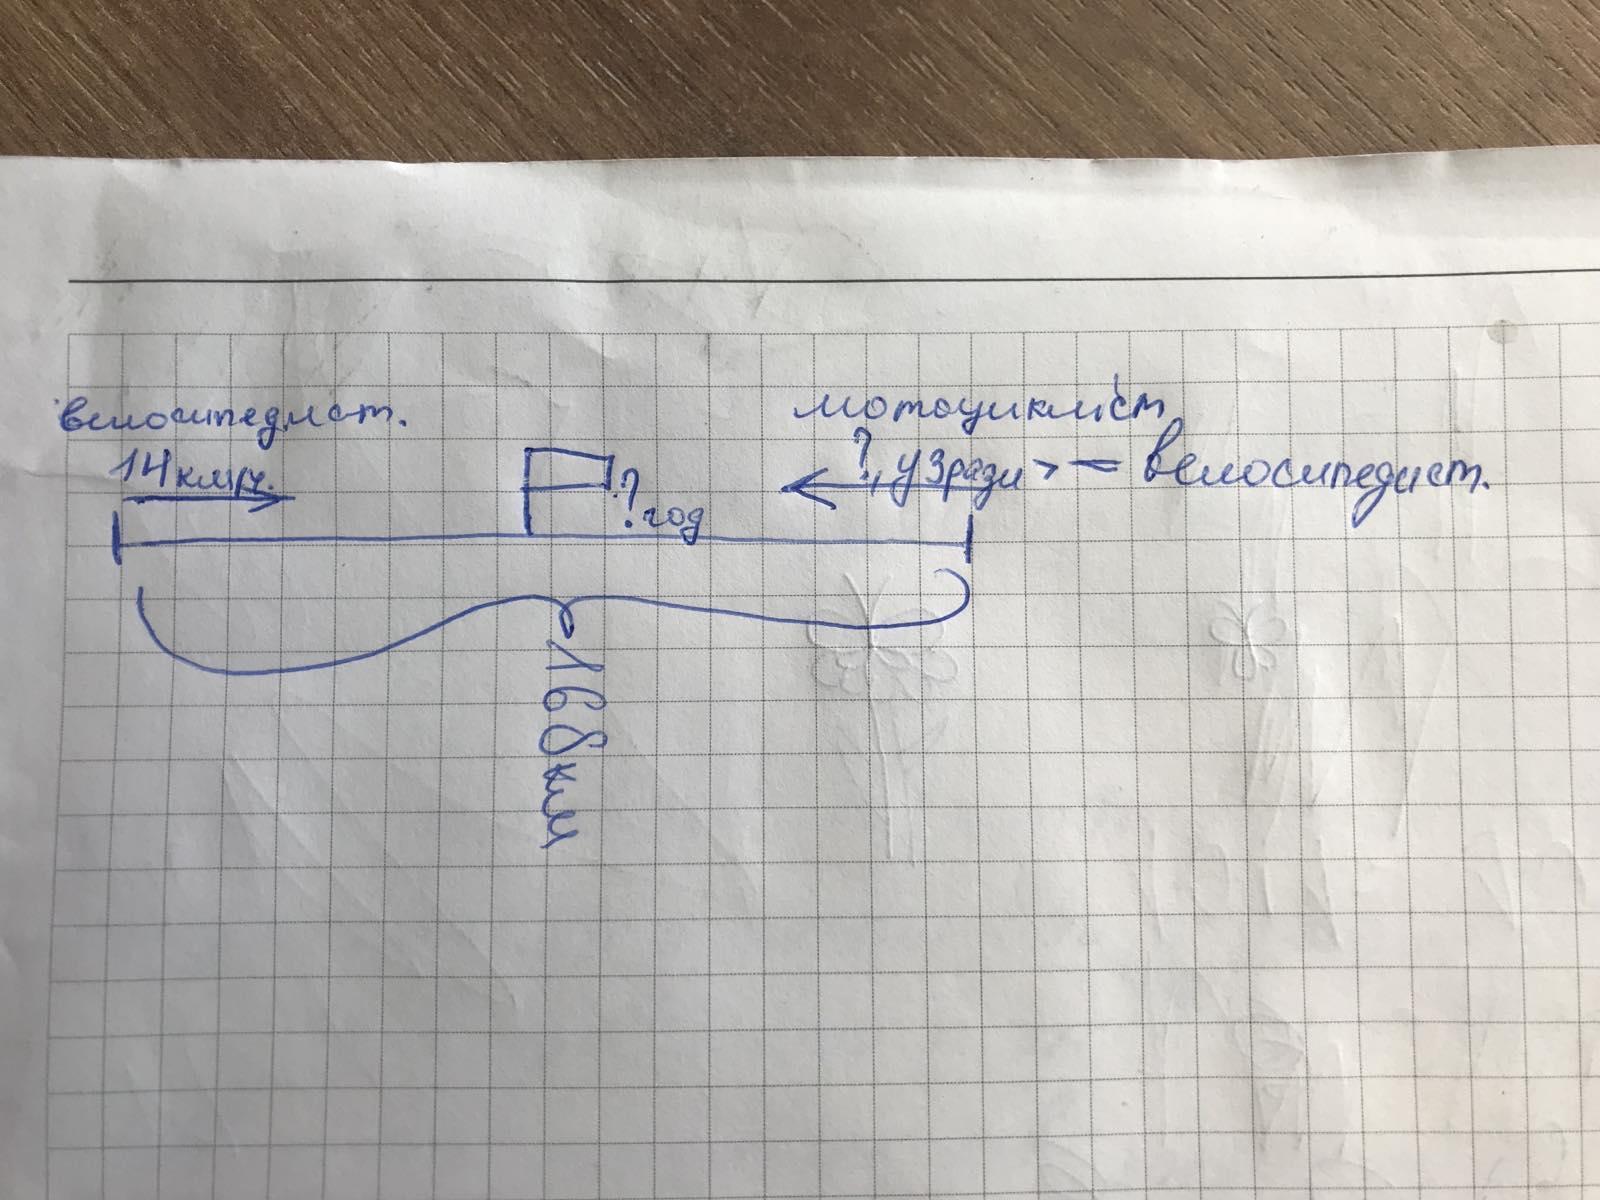 велосипедист.
14 км/ч.
мотоцикліст
?, у 3 рази > - велосипедист.
? год
168 км